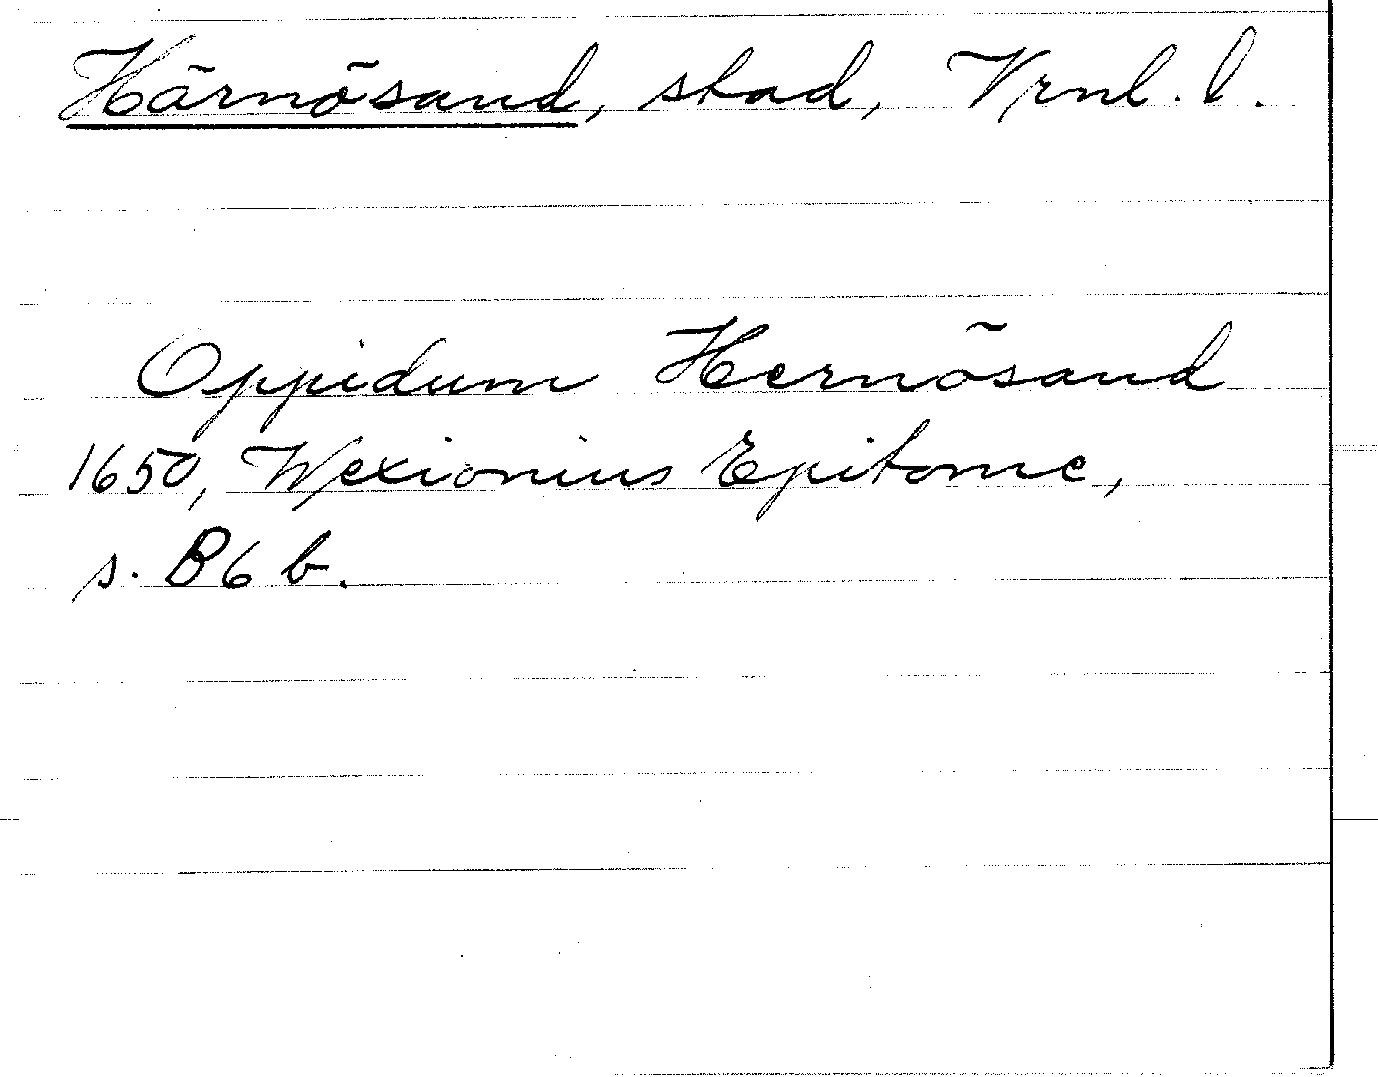 Härnösand, stad, Vrnl. l.
Oppidum Hernösand
1650, Wexionius Epitome,
s. B6 b.